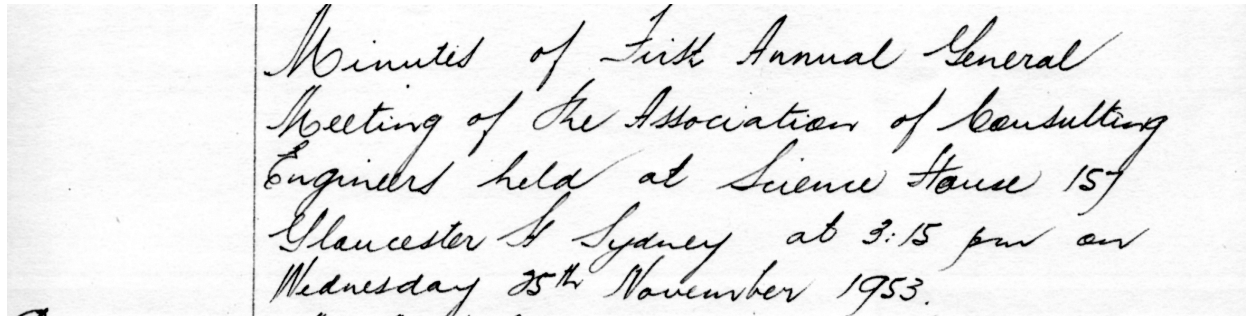 Minutes of First Annual General
Meeting of the Association of Consulting
Engineers held at Science House 157
Gloucester St Sydney at 3:15 pm on
Wednesday 25th November 1953.